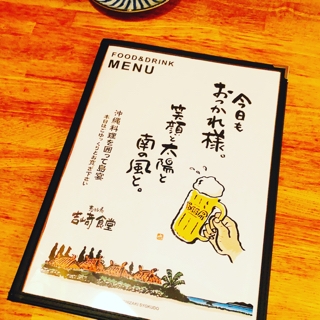 FOOD&DRINK
MENU
今日も
おつかれ様。
笑顔と太陽と
南の風と。
沖縄料理を囲って島宴
本日はごゆっくりとお寛ぎ下さい
吉崎食堂
BEER